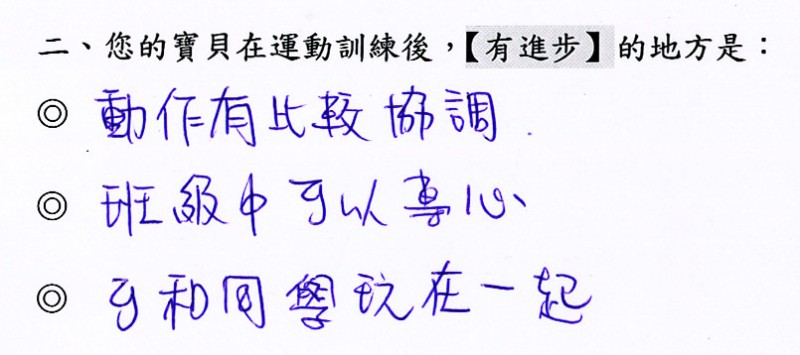 二、您的寶貝在運動訓練後，【有進步】的地方是：
◎ 動作有比較協調．
◎ 班級中可以專心
◎ 可和同學玩在一起